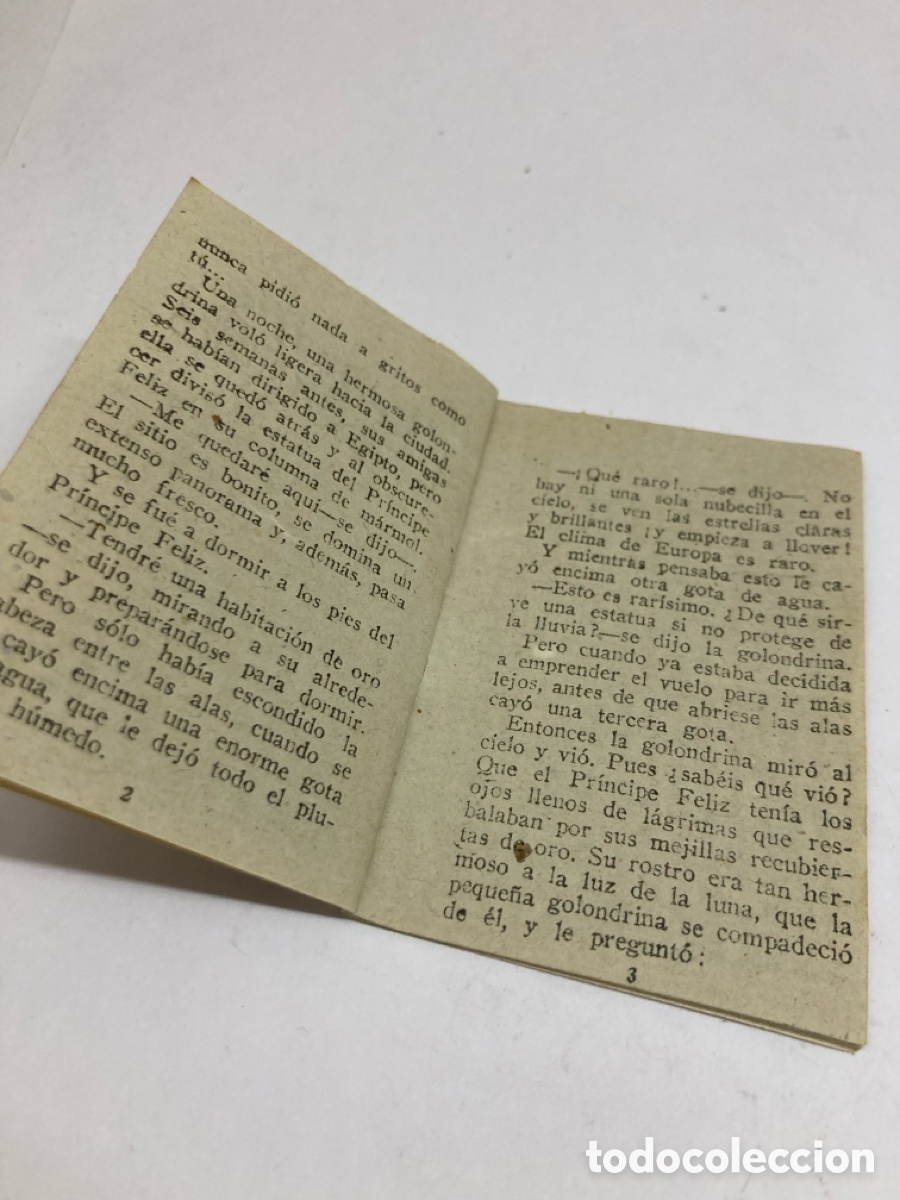 nunca pidió nada a gritos como
tú...
Una noche, una hermosa golon-
drina voló ligera hacia la ciudad.
Seis semanas antes, sus amigas
se habían dirigido a Egipto, pero
ella se quedó atrás y al obscure-
cer divisó la estatua del Príncipe
Feliz en su columna de mármol.
—Me quedaré aquí—se dijo—.
El sitio es bonito, se domina un
extenso panorama y, además, pasa
mucho fresco.
Y se fué a dormir a los pies del
Príncipe Feliz.
—Tendré una habitación de oro
—se dijo, mirando a su alrede-
dor y preparándose para dormir.
Pero sólo había escondido la
abeza entre las alas, cuando se
cayó encima una enorme gota
agua, que le dejó todo el plu-
húmedo.
2
—¡Qué raro!...—se dijo—. No
hay ni una sola nubecilla en el
cielo, se ven las estrellas claras
y brillantes ¡y empieza a llover!
El clima de Europa es raro.
Y mientras pensaba esto le ca-
yó encima otra gota de agua.
—Esto es rarísimo. ¿De qué sir-
ve una estatua si no protege de
la lluvia?—se dijo la golondrina.
Pero cuando ya estaba decidida
a emprender el vuelo para ir más
lejos, antes de que abriese las alas
cayó una tercera gota.
Entonces la golondrina miró al
cielo y vió. Pues ¿sabéis qué vió?
Que el Príncipe Feliz tenía los
ojos llenos de lágrimas que res-
balaban por sus mejillas recubier-
tas de oro. Su rostro era tan her-
moso a la luz de la luna, que la
pequeña golondrina se compadeció
de él, y le preguntó:
3
todocoleccion